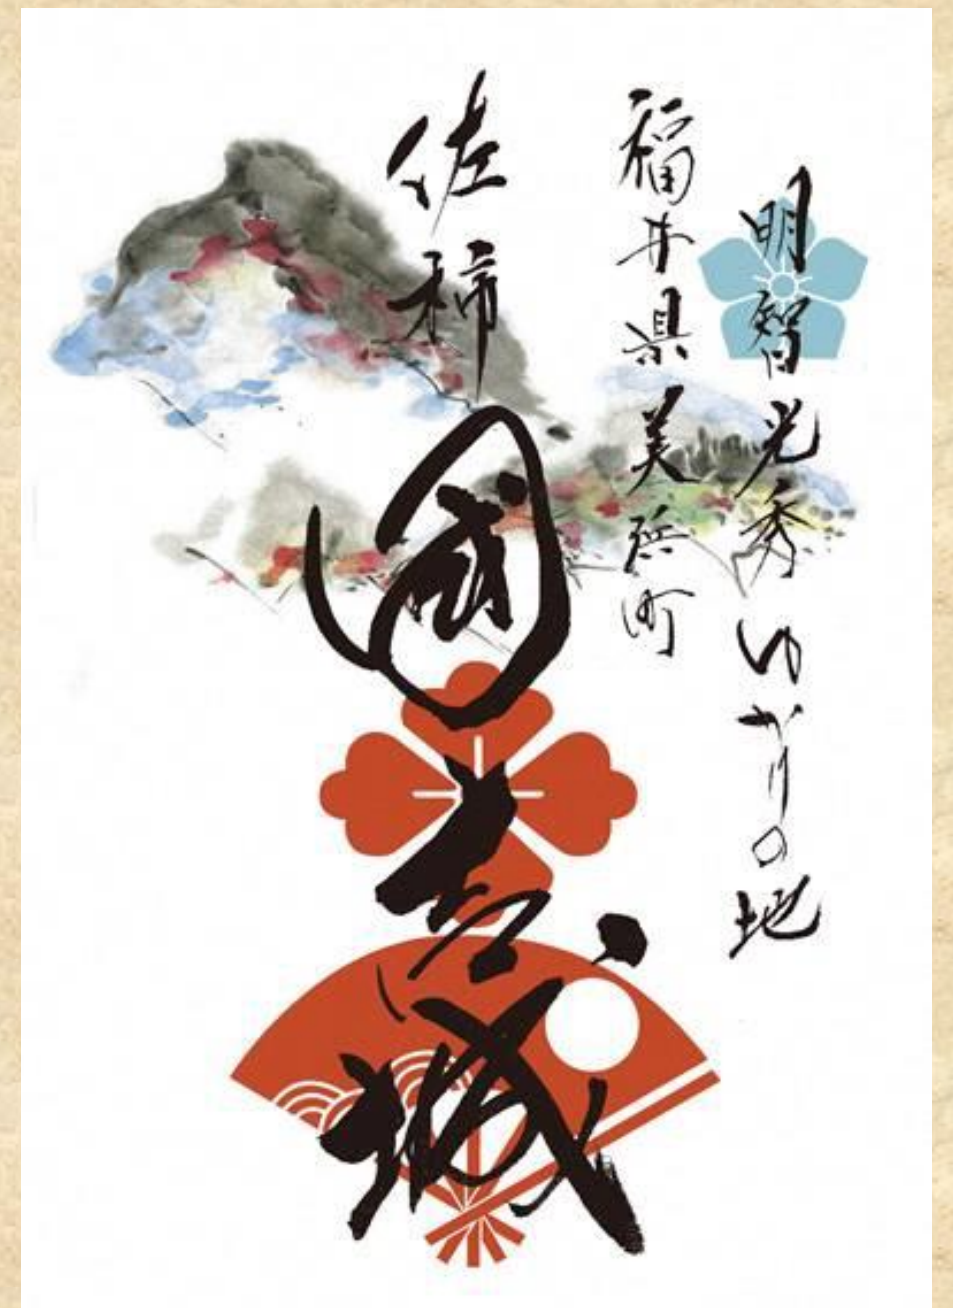 明智光秀ゆかりの地
福井県美浜町
佐柿
國吉城